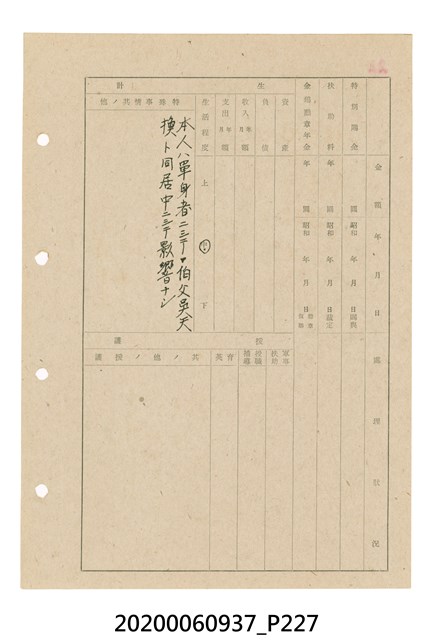 金額年月日
處理狀況
特別賜金
圓 昭和 年 月 日 國債
扶助料
年 圓 昭和 年 月 日 裁定
金鵄勳章年金
年 圓 昭和 年 月 日
生計
資產
負債
收入 年額 月額
支出 年額 月額
生活程度 上 中 下
特殊事情其ノ他
本人ハ單身者ニシテ伯父吳天
換ト同居中ニシテ影響ナシ
援護
軍事扶助
授職補導
育英
其ノ他ノ援護
20200060937_P227